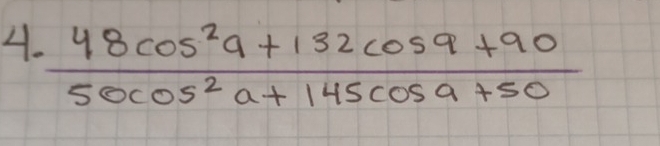 4. 48cos²a+132cosa+90
50cos²a+145cosa+50